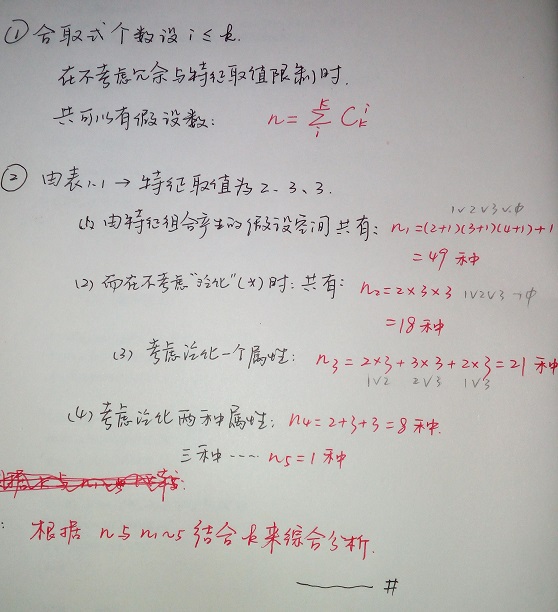 ① 合取式个数设 i ≤ k.
在不考虑冗余与特征取值限制时.
共可以有假设数: n = ∑ᵢᵏ Cₖⁱ
② 由表1.1 → 特征取值为 2、3、3.
1∨2∨3∨.φ
(1) 由特征组合产生的假设空间共有: n₁=(2+1)(3+1)(4+1)+1
= 49 种
(2) 而在不考虑"泛化"(*)时: 共有: n₂=2×3×3 1∨2∨3 ¬φ
=18种
(3) 考虑泛化一个属性: n₃ = 2×3+3×3+2×3=21 种
1∨2 2∨3 1∨3
(4) 考虑泛化两种属性: n₄=2+3+3=8 种.
三种---- n₅=1 种
: 根据 n与n₁~₅ 结合k来综合分析.
#